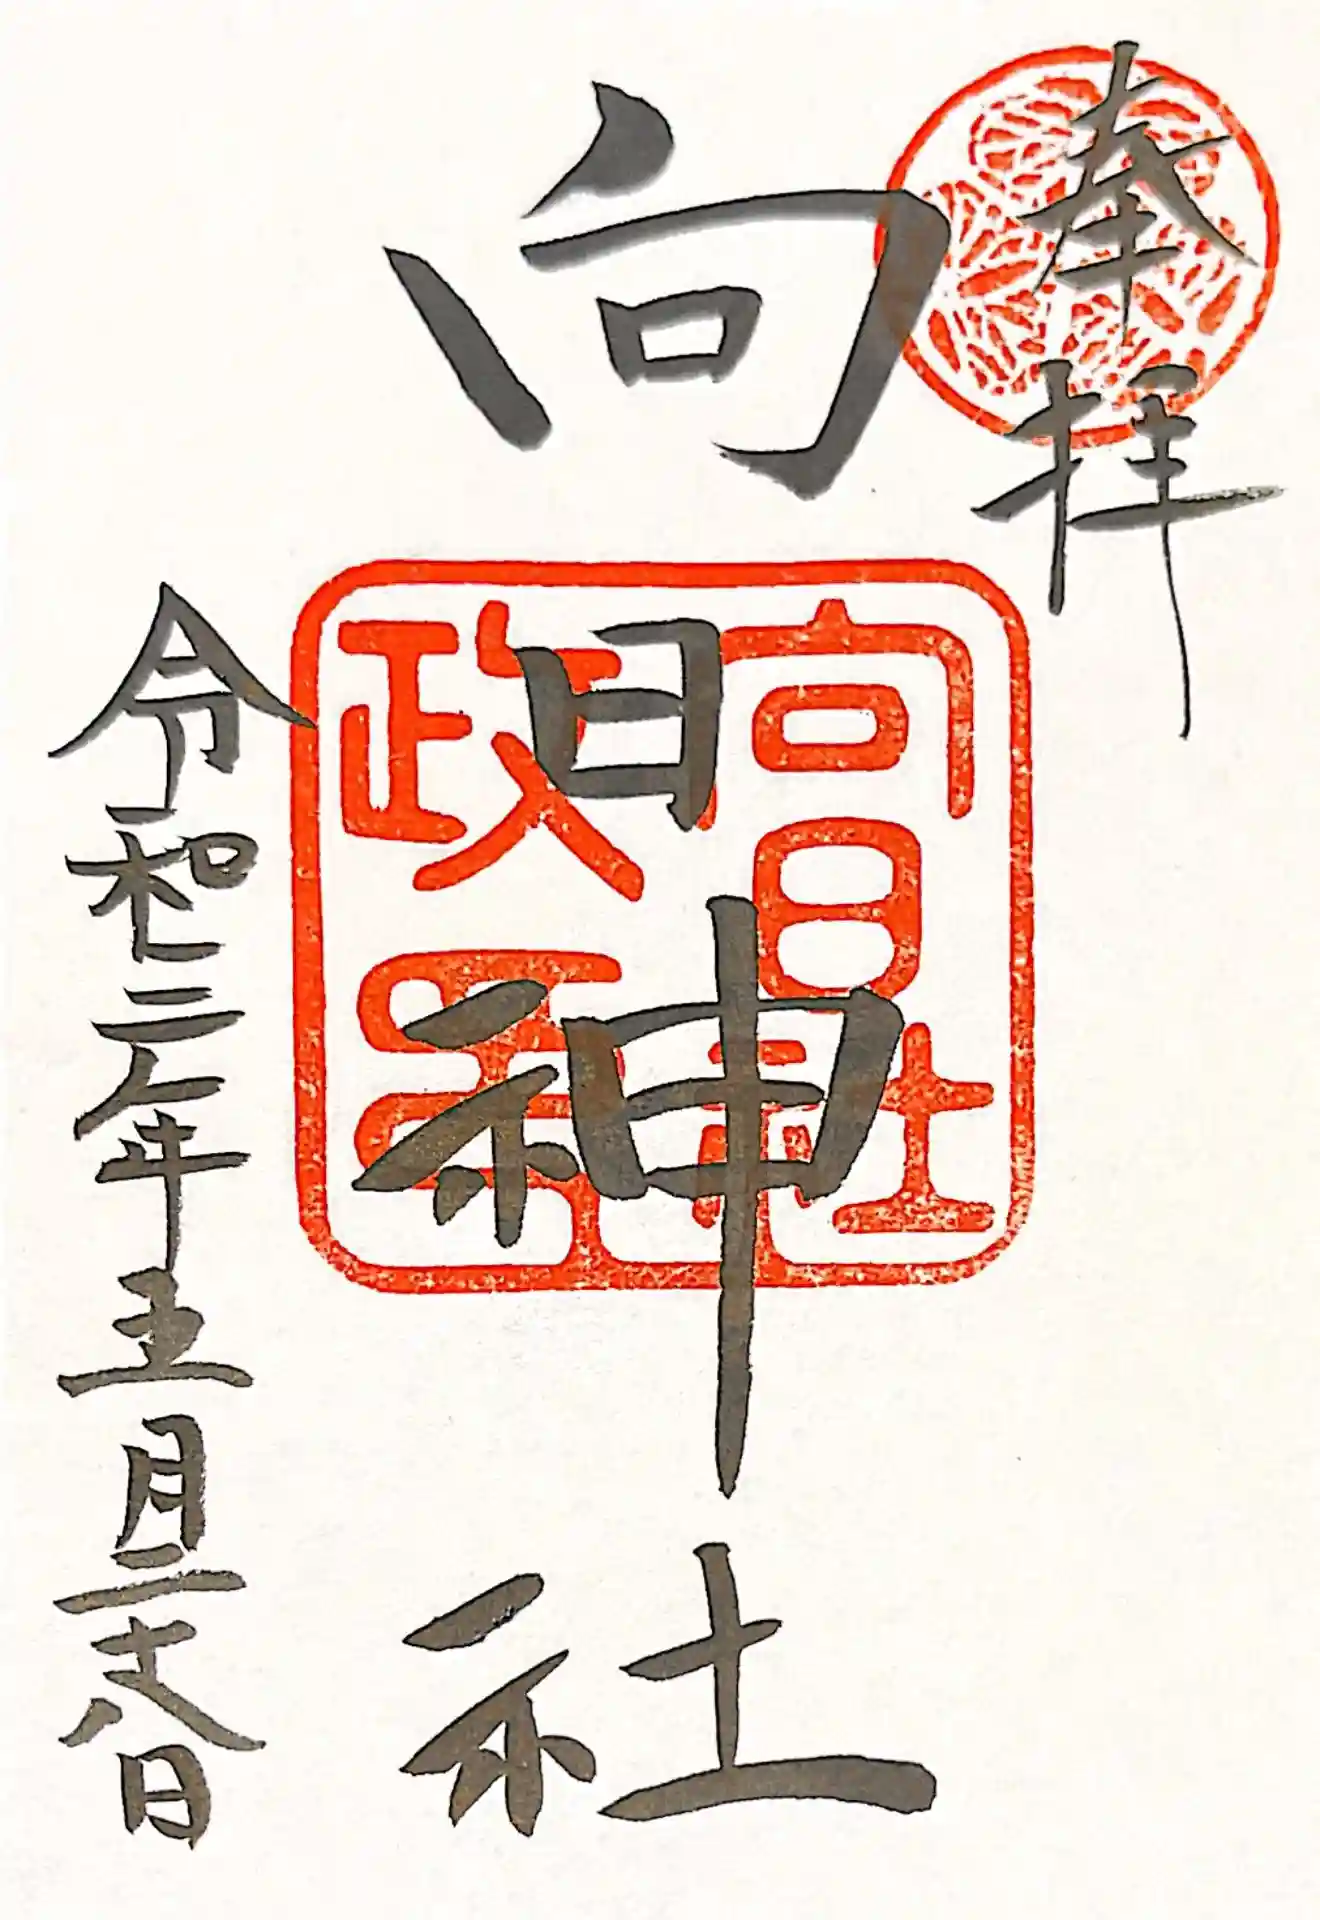 奉拝
向日神社
向日社
政
令和二年五月二十八日